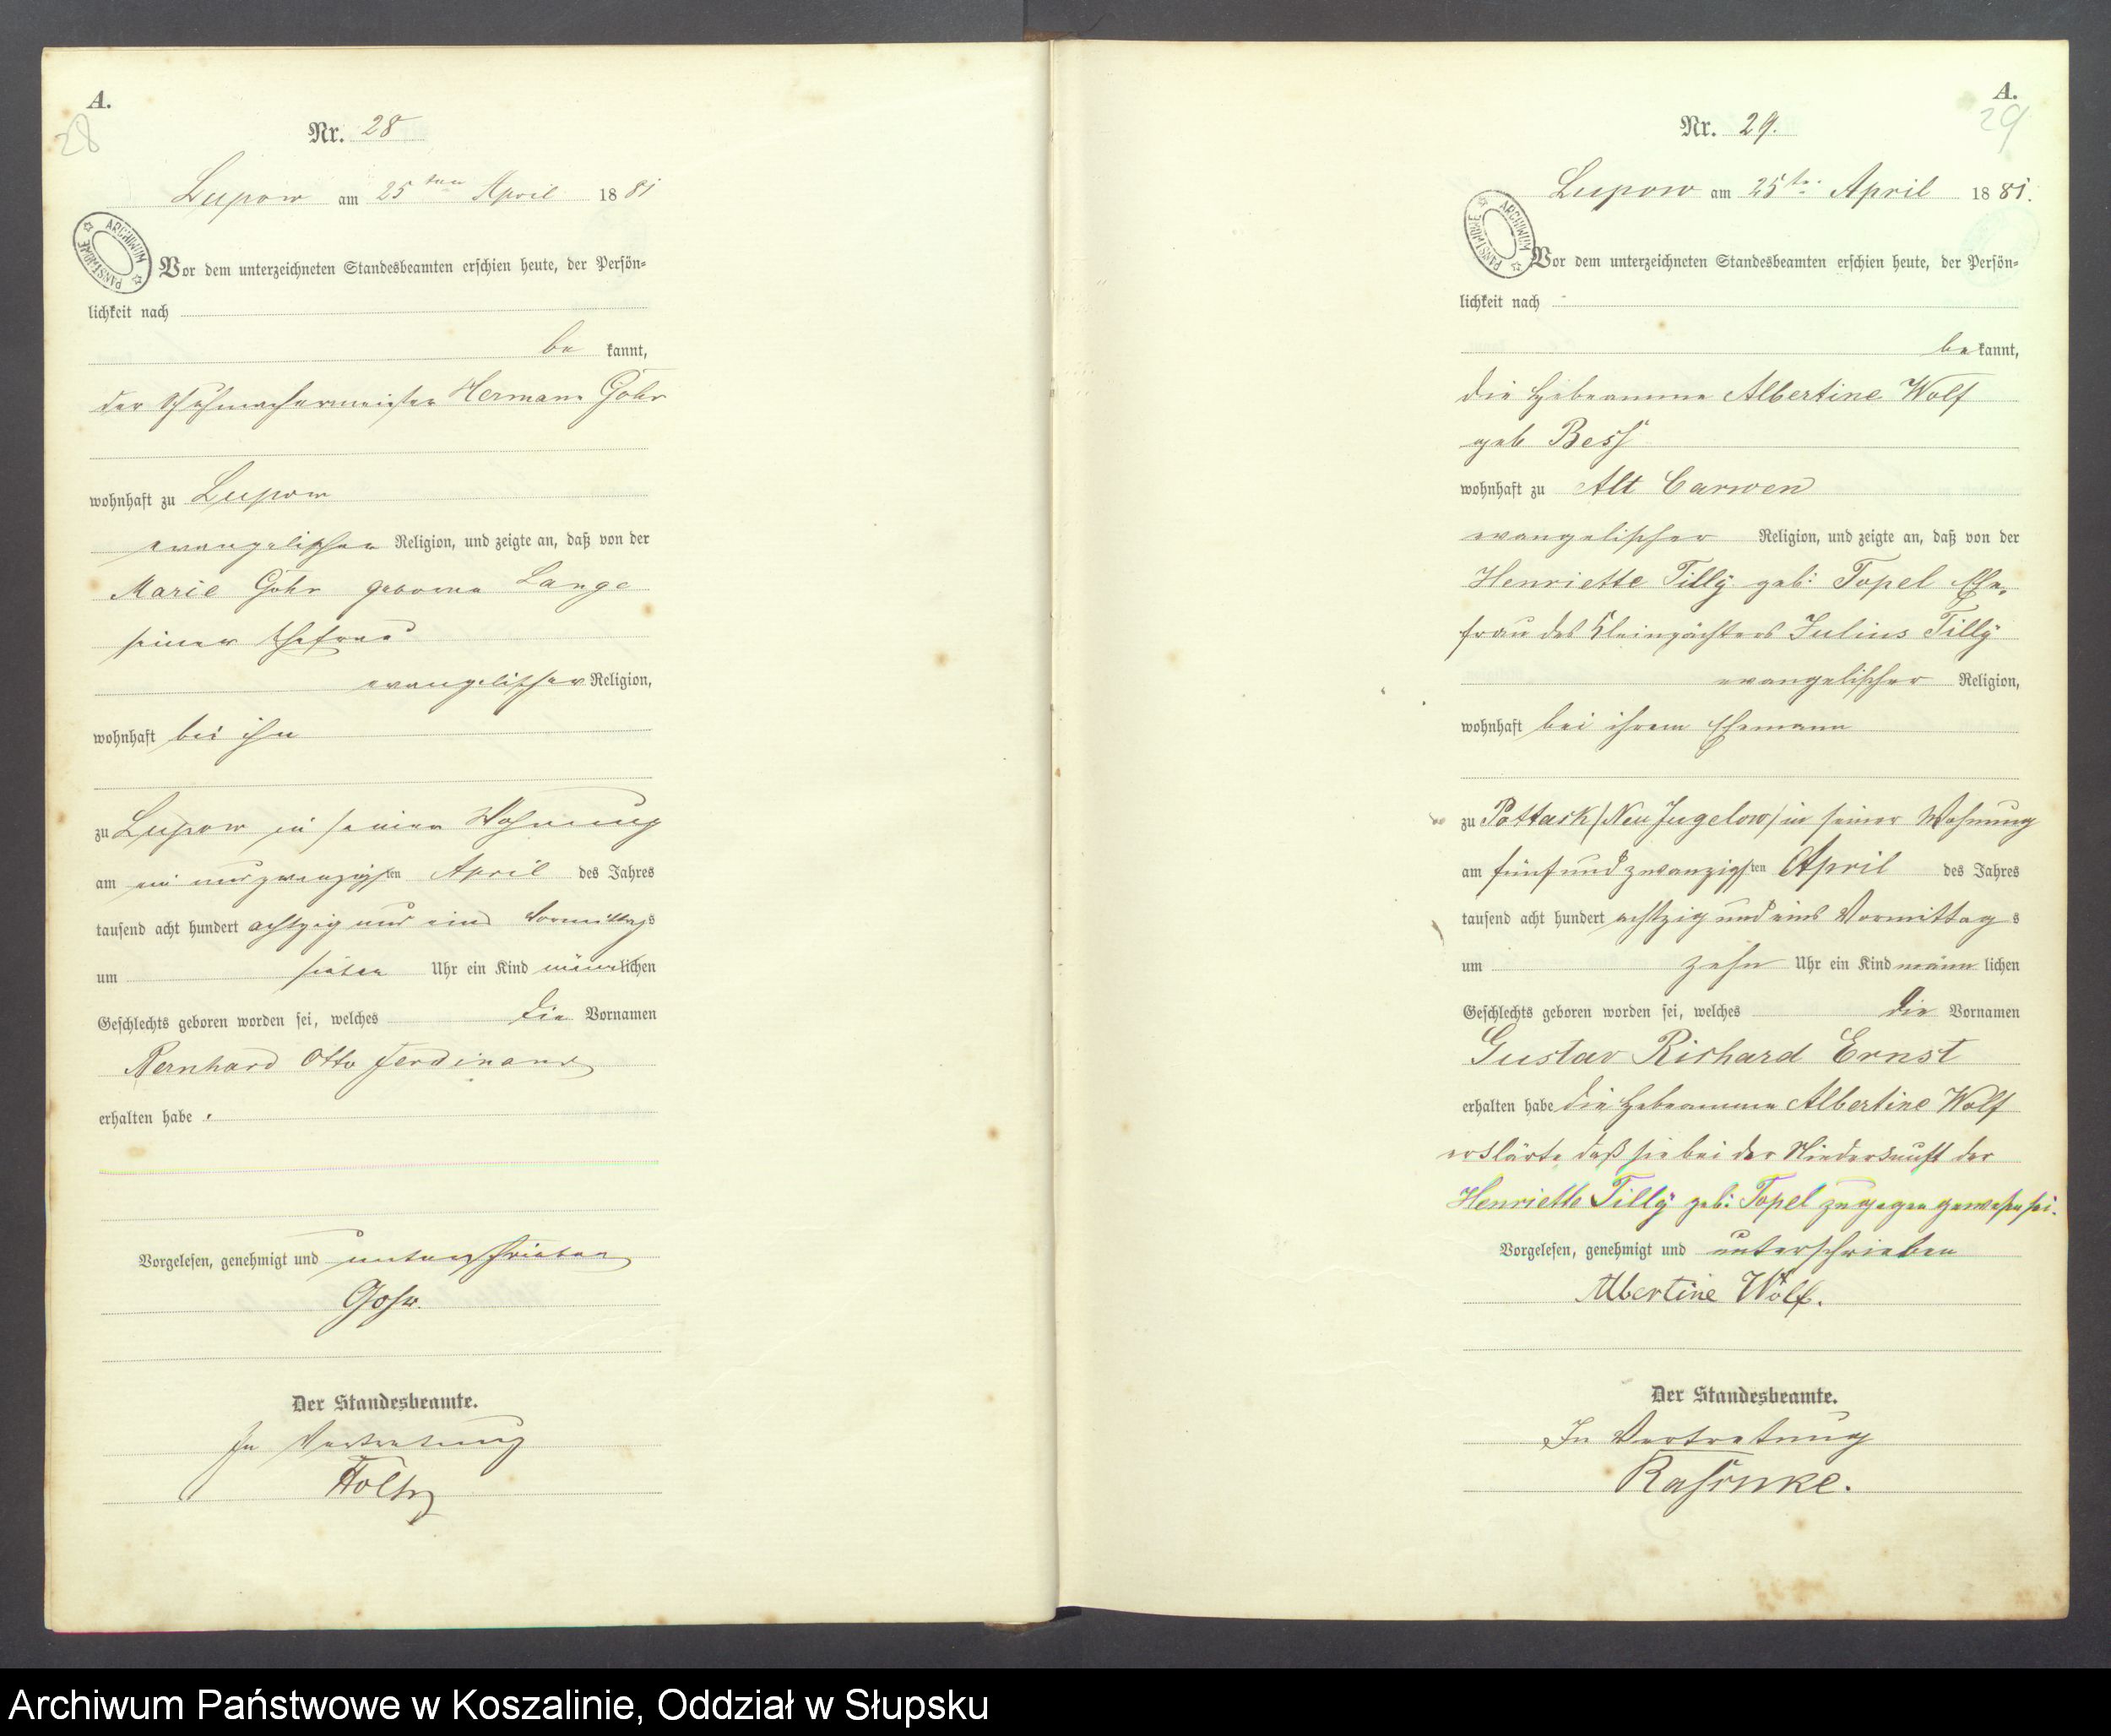 A.
28
Nr. 28
Lupow am 25ten April 1881
ARCHIWUM PAŃSTWOWE
Vor dem unterzeichneten Standesbeamten erschien heute, der Persön=
lichkeit nach
be kannt,
der Schuhmachermeister Hermann Gohr
wohnhaft zu Lupow
evangelischer Religion, und zeigte an, daß von der
Marie Gohr geborne Lange
seiner Ehefrau
evangelischer Religion,
wohnhaft bei ihm
zu Lupow in seiner Wohnung
am ein und zwanzigsten April des Jahres
tausend acht hundert achtzig und eins Vormittags
um sieben Uhr ein Kind männlichen
Geschlechts geboren worden sei, welches die Vornamen
Bernhard Otto Ferdinand
erhalten habe.
Vorgelesen, genehmigt und unterschrieben
Gohr.
Der Standesbeamte.
In Vertretung
A.
29
Nr. 29.
Lupow am 25te. April 1881.
ARCHIWUM PAŃSTWOWE
Vor dem unterzeichneten Standesbeamten erschien heute, der Persön=
lichkeit nach
be kannt,
die Hebeamme Albertine Wolf
geb Bess
wohnhaft zu Alt Carwen
evangelischer Religion, und zeigte an, daß von der
Henriette Tilly geb: Topel Ehe,
frau des Kleinpächters Julius Tilly
evangelischer Religion,
wohnhaft bei ihrem Ehemann
zu Pottack /Neu Jugelow/ in seiner Wohnung
am fünf und zwanzigsten April des Jahres
tausend acht hundert achtzig und eins Vormittags
um zehn Uhr ein Kind männlichen
Geschlechts geboren worden sei, welches die Vornamen
Gustav Richard Ernst
erhalten habe die Hebeamme Albertine Wolf
erklärte daß sie bei der Niederkunft der
Henriette Tilly geb: Topel zugegen gewesen sei.
Vorgelesen, genehmigt und unterschrieben
Albertine Wolf.
Der Standesbeamte.
In Vertretung
Archiwum Państwowe w Koszalinie, Oddział w Słupsku